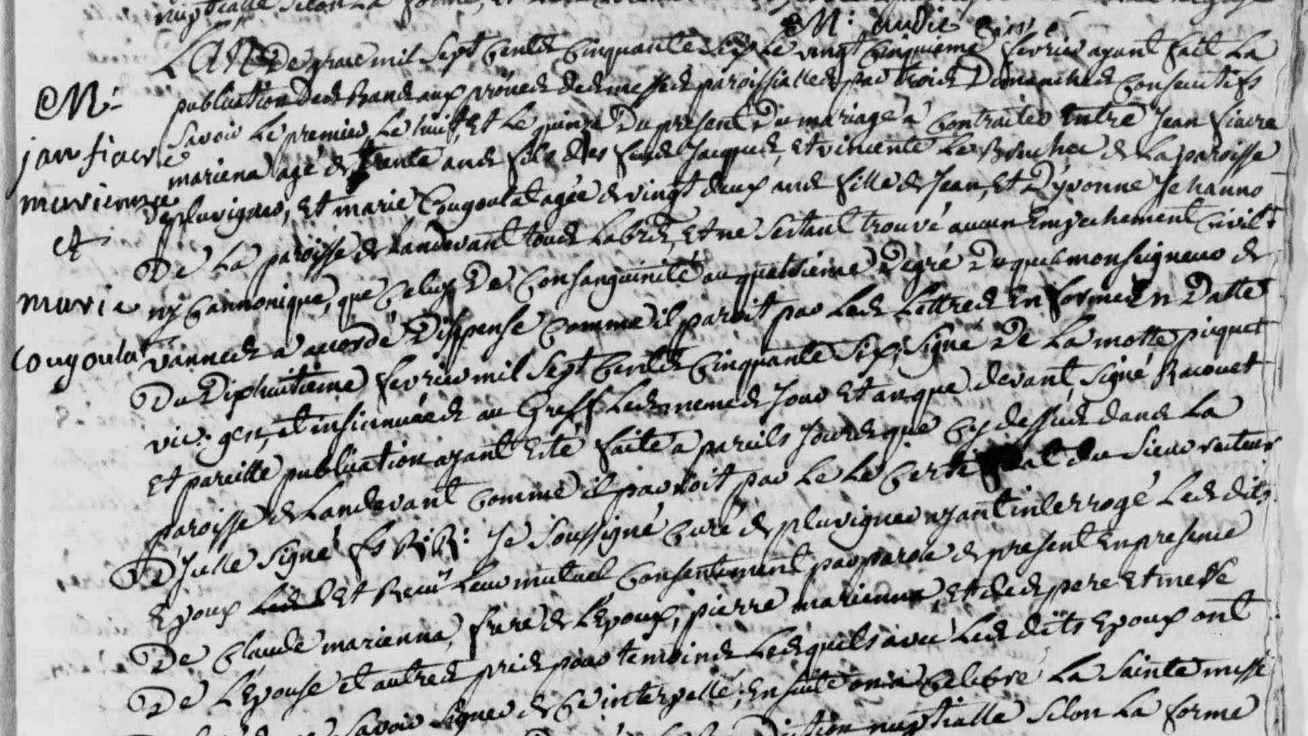 nuptialle selon la forme, et
M: audic curé
M:
jan fiacre
marienne
et
marie
Cougoulat
L'AN De grace mil sept cents cinquante six le vingt cinquieme fevrier ayant fait La
publication des Bans aux prônes des messes paroissialles par trois Dimanches Consecutifs
savoir Le premier Le huit Et Le quinze Du present Du mariage à Contracter Entre Jean fiacre
marienna agé de trente ans fils des feus Jacques, Et vincente Le Boucher de La paroisse
de pluvigner, Et marie Cougoulat agée de vingt deux ans fille de Jean, Et D'yvonne Jehanno
De La paroisse de Landevant tous Labrs, Et ne s'estant trouvé aucun Empechement Civil
ny Cannonique, que Celuy De Consanguinité au quatrieme Degré Duquel monseigneur de
vannes a accordé Dispense Comme il paroit par Les Lettres En forme En Datte
Du Dixhuitieme fevrier mil sept Cents Cinquante six, signé De La motte picquet
vic. gen, et insinuées au Greff Les memes Jour Et an que devant signé Racouet
Et pareille publication ayant Eté faite a pareils Jours que Cy dessus dans La
paroisse de Landevant Comme il paroit par Le Le Certificat du Sieur recteur
D'Icelle signé Je soussigné Curé de pluvigner ayant interrogé Lesdits
Epoux Et Reçu Leur mutuel Consentement par parole de present En presence
De Claude marienna, frere de L'Epoux, pierre marienna, Et des pere Et mere
De L'Epouse et autres pris pour temoins Lesquels avec Lesdits Epoux ont
savoir signer de Ce interpellé, En suite on a Celebré La Sainte messe
nuptialle selon La forme